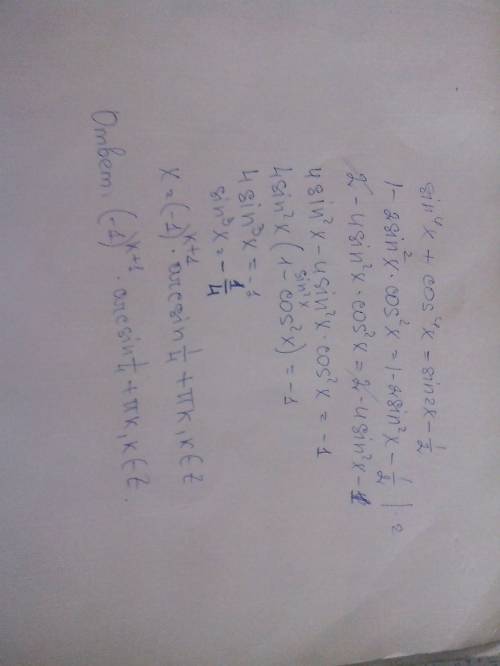 sin⁴x + cos⁴x = sin2x - 1/2
1 - 2sin²x · cos²x = 1 - 2sin²x - 1/2 | · 2
2 - 4sin²x · cos²x = 2 - 4sin²x - 1
4sin²x - 4sin²x · cos²x = -1
sin²x
4sin²x (1 - cos²x) = -1
4sin³x = -1
sin³x = -1/4
x = (-1)ᵏ⁺¹ · arcsin 1/4 + πk, k∈Z
Ответ: (-1)ᵏ⁺¹ · arcsin 1/4 + πk, k∈Z.